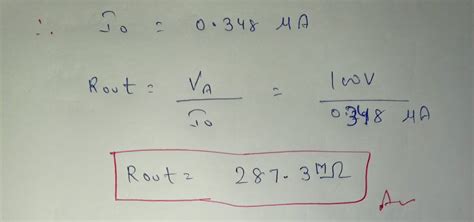 ∴ I₀ = 0.348 μA
Rout = V_A / I₀ = 100V / 0.348 μA
Rout = 287.3 MΩ